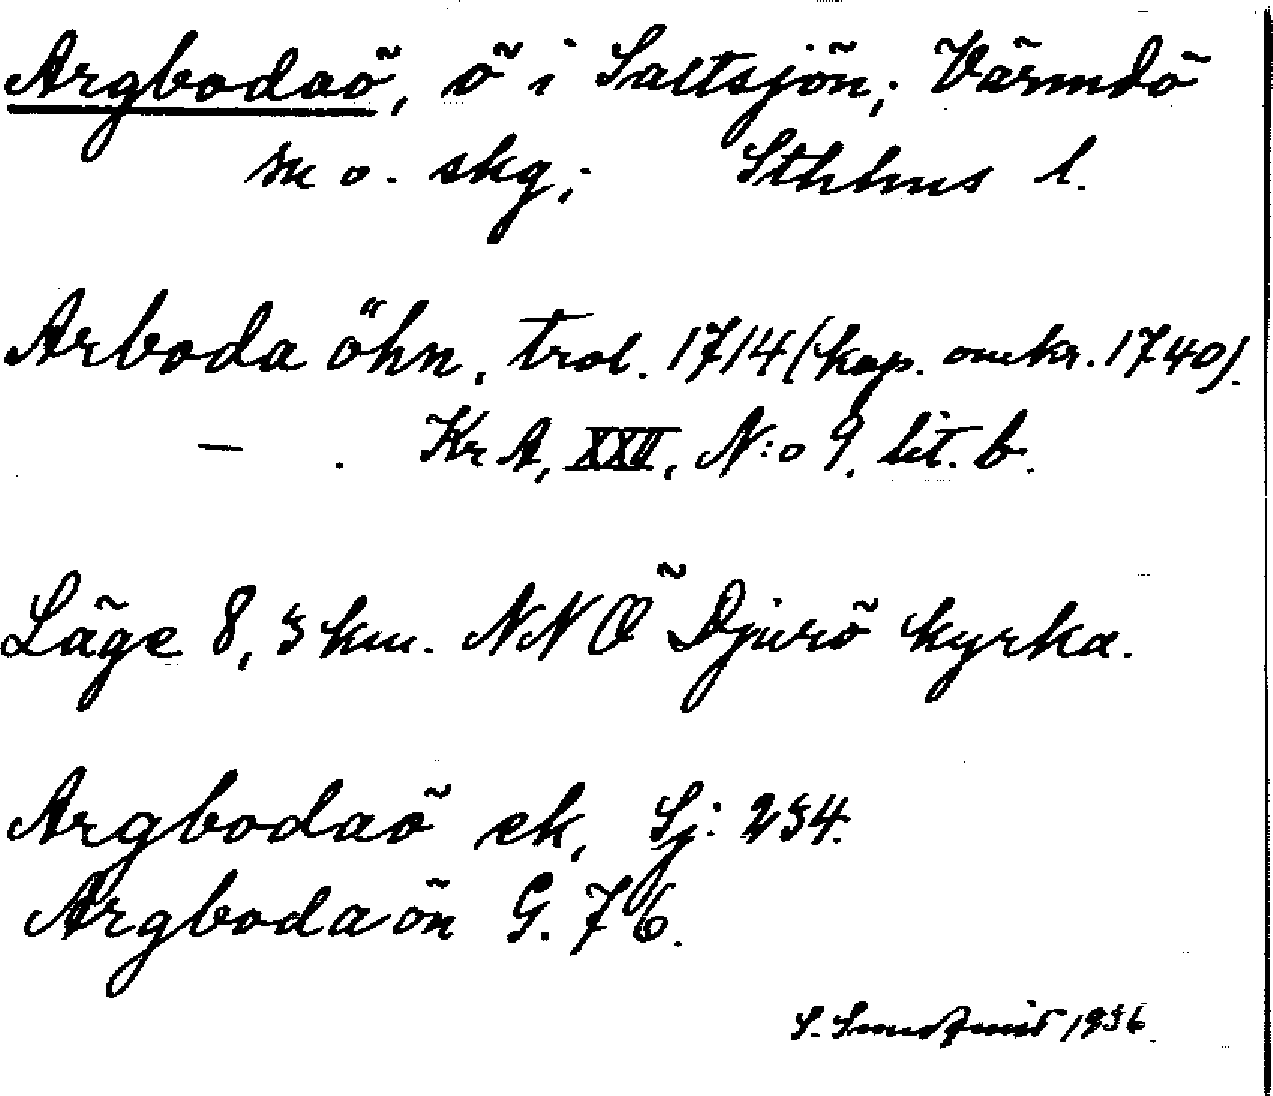 Argbodaö, ö i Saltsjön; Värmdö
sn o. skg; Sthlms l.
Arboda öhn, trol. 1714 (kop. omkr. 1740).
— . KrA, XXII, N:o 9. lit. b.
Läge 8,5 km. NNÖ Djurö kyrka.
Argbodaö ek, Sj: 234.
Argbodaön G. 76.
S. 1936.